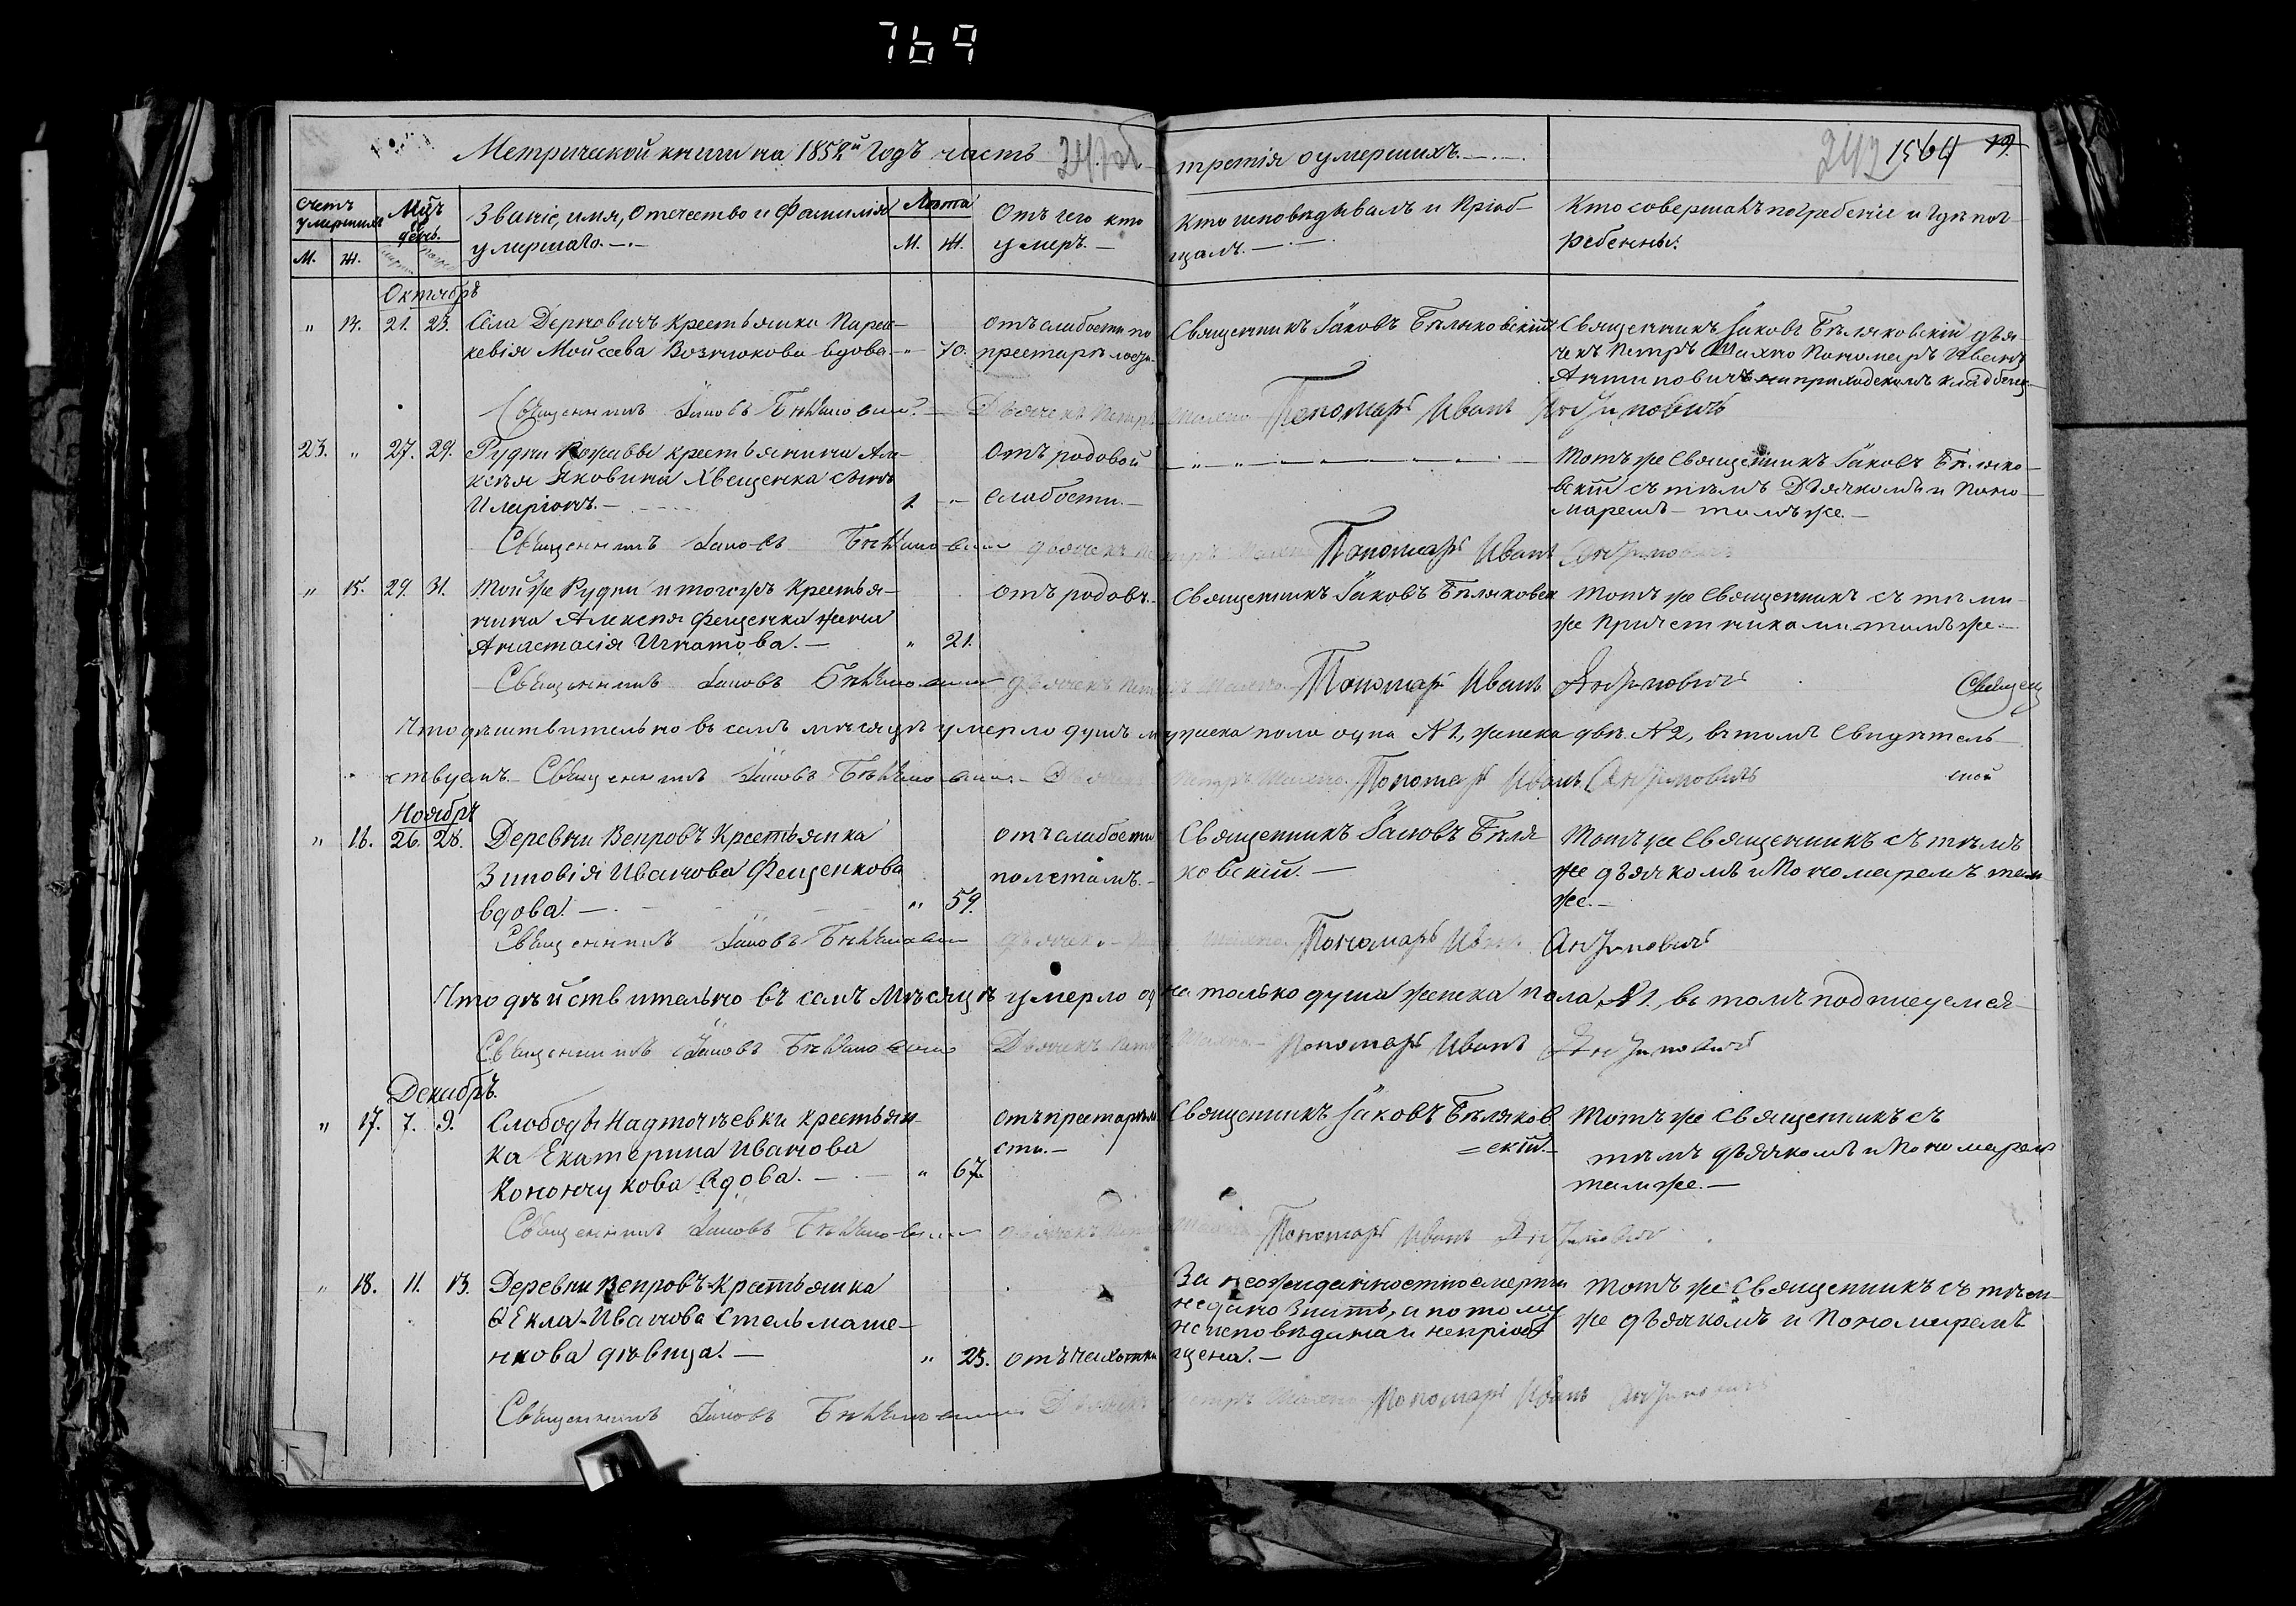 769
Метрической книги на 1852й Годъ часть
третія о умершихъ.
242 1564 19.
Счетъ умершихъ
М. Ж.
Мцъ и день.
Званіе, имя, отечество и Фамилія
умершаго.
Лѣта
М. Ж.
Отъ чего кто
умеръ.
Кто исповѣдывалъ и Пріоб-
щалъ.
Кто совершалъ погребеніе и Гдѣ пог-
ребенны.
Октябрь
„ 14. 21. 23. Села Дерновичъ крестьянка Парас-
кевія Моисѣева Вознюкова вдова. „ 70.
отъ слабости по
престарѣлости
Священникъ Іаковъ Бѣляковскій
Священникъ Іаковъ Бѣляковскій дья-
чекъ Петръ Малхно Пономарь Иванъ
Антиповичъ на приходскомъ кладбищѣ
Священникъ Іаковъ Бѣляковскій Дьячекъ Петръ Пономарь Иванъ Антиповичъ
23. „ 27. 29. Рудни крестьянина Але-
ксѣя Яковина Хвещенка сынъ
Иларіонъ. 1 „
Отъ родовой
слабости.
Тотъ же Священникъ Іаковъ Бѣляко-
вскій съ тѣмъ Дьячкомъ и Поно-
маремъ тамъ же.
Священникъ Іаковъ Бѣляковскій дьячекъ Пономарь Иванъ Антиповичъ
„ 15. 29. 31. Той же Рудни и тогожъ Крестья-
нина Алексѣя Фещенка жена
Анастасія Игнатова. „ 21.
отъ родовъ.
Священникъ Іаковъ Бѣляковск
Тотъ же Священникъ съ тѣми
же Причетниками тамъ же.
Священникъ Іаковъ Бѣляковскій дьячекъ Пономарь Иванъ Антиповичъ
Священ
Что дѣйствительно въ семъ мѣсяцѣ умерло душъ мужеска пола одна №1, женска двѣ №2, въ томъ Свидѣтель
ствуемъ. Священникъ Іаковъ Бѣляковскій Дьячекъ Петръ Пономарь Иванъ Антиповичъ
Ноябрь
„ 16. 26. 28. Деревни Вепровъ Крестьянка
Зиновія Иванова Фещенкова
вдова. „ 59.
отъ слабости
по летамъ.
Священникъ Іаковъ Бѣля
ковскій.
Тотъ же Священникъ съ тѣмъ
же дьячкомъ и Пономаремъ там
же.
Священникъ Іаковъ Бѣляковскій дьячекъ Пономарь Иванъ Антиповичъ
Что дѣйствительно въ семъ Мѣсяцѣ умерло одна только душа женска пола №1. въ томъ подписуемся
Священникъ Іаковъ Бѣляковскій Дьячекъ Петръ Пономарь Иванъ Антиповичъ
Декабрь.
„ 17. 7. 9. Слободы Надточаевки крестьян-
ка Екатерина Иванова
Конончукова вдова. „ 67.
отъ престарѣло
сти.
Священникъ Іаковъ Бѣляков
=скій.
Тотъ же Священникъ съ
тѣмъ дьячкомъ и Пономарем
тамже.
Священникъ Іаковъ Бѣляковскій дьячекъ Пономарь Иванъ Антиповичъ
„ 18. 11. 13. Деревни Вепровъ Крестьянка
Ѳекла Иванова Стельмаше-
нкова дѣвица. „ 23.
отъ чахотки
За неожиданностію смерти
недано знать, а потому
неисповѣдана и непріоб
щена.
Тотъ же Священникъ съ тѣм
же дьячкомъ и Пономаремъ
Священникъ Іаковъ Бѣляковскій Дьячекъ Петръ Пономарь Иванъ Антиповичъ